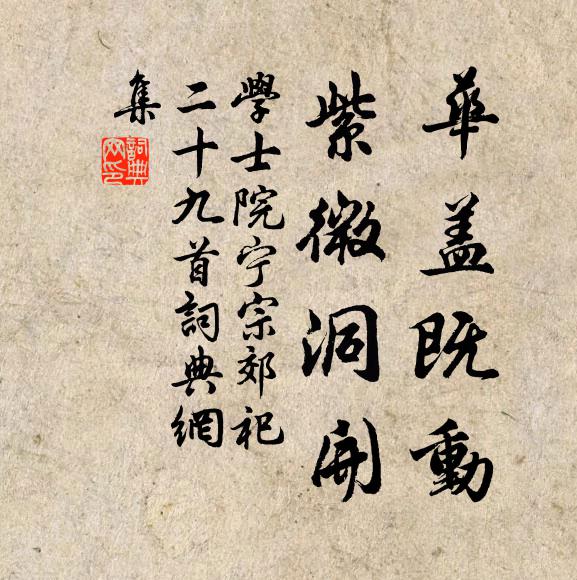 華盖既動
紫微洞開
學士院宁宗郊祀
二十九首詞典網
集
詞典網印